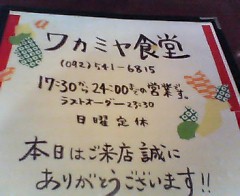 ワカミヤ食堂
(092)541-6815
17:30から24:00までの営業です。
ラストオーダー23:30
日曜定休
本日はご来店誠に
ありがとうございます!!